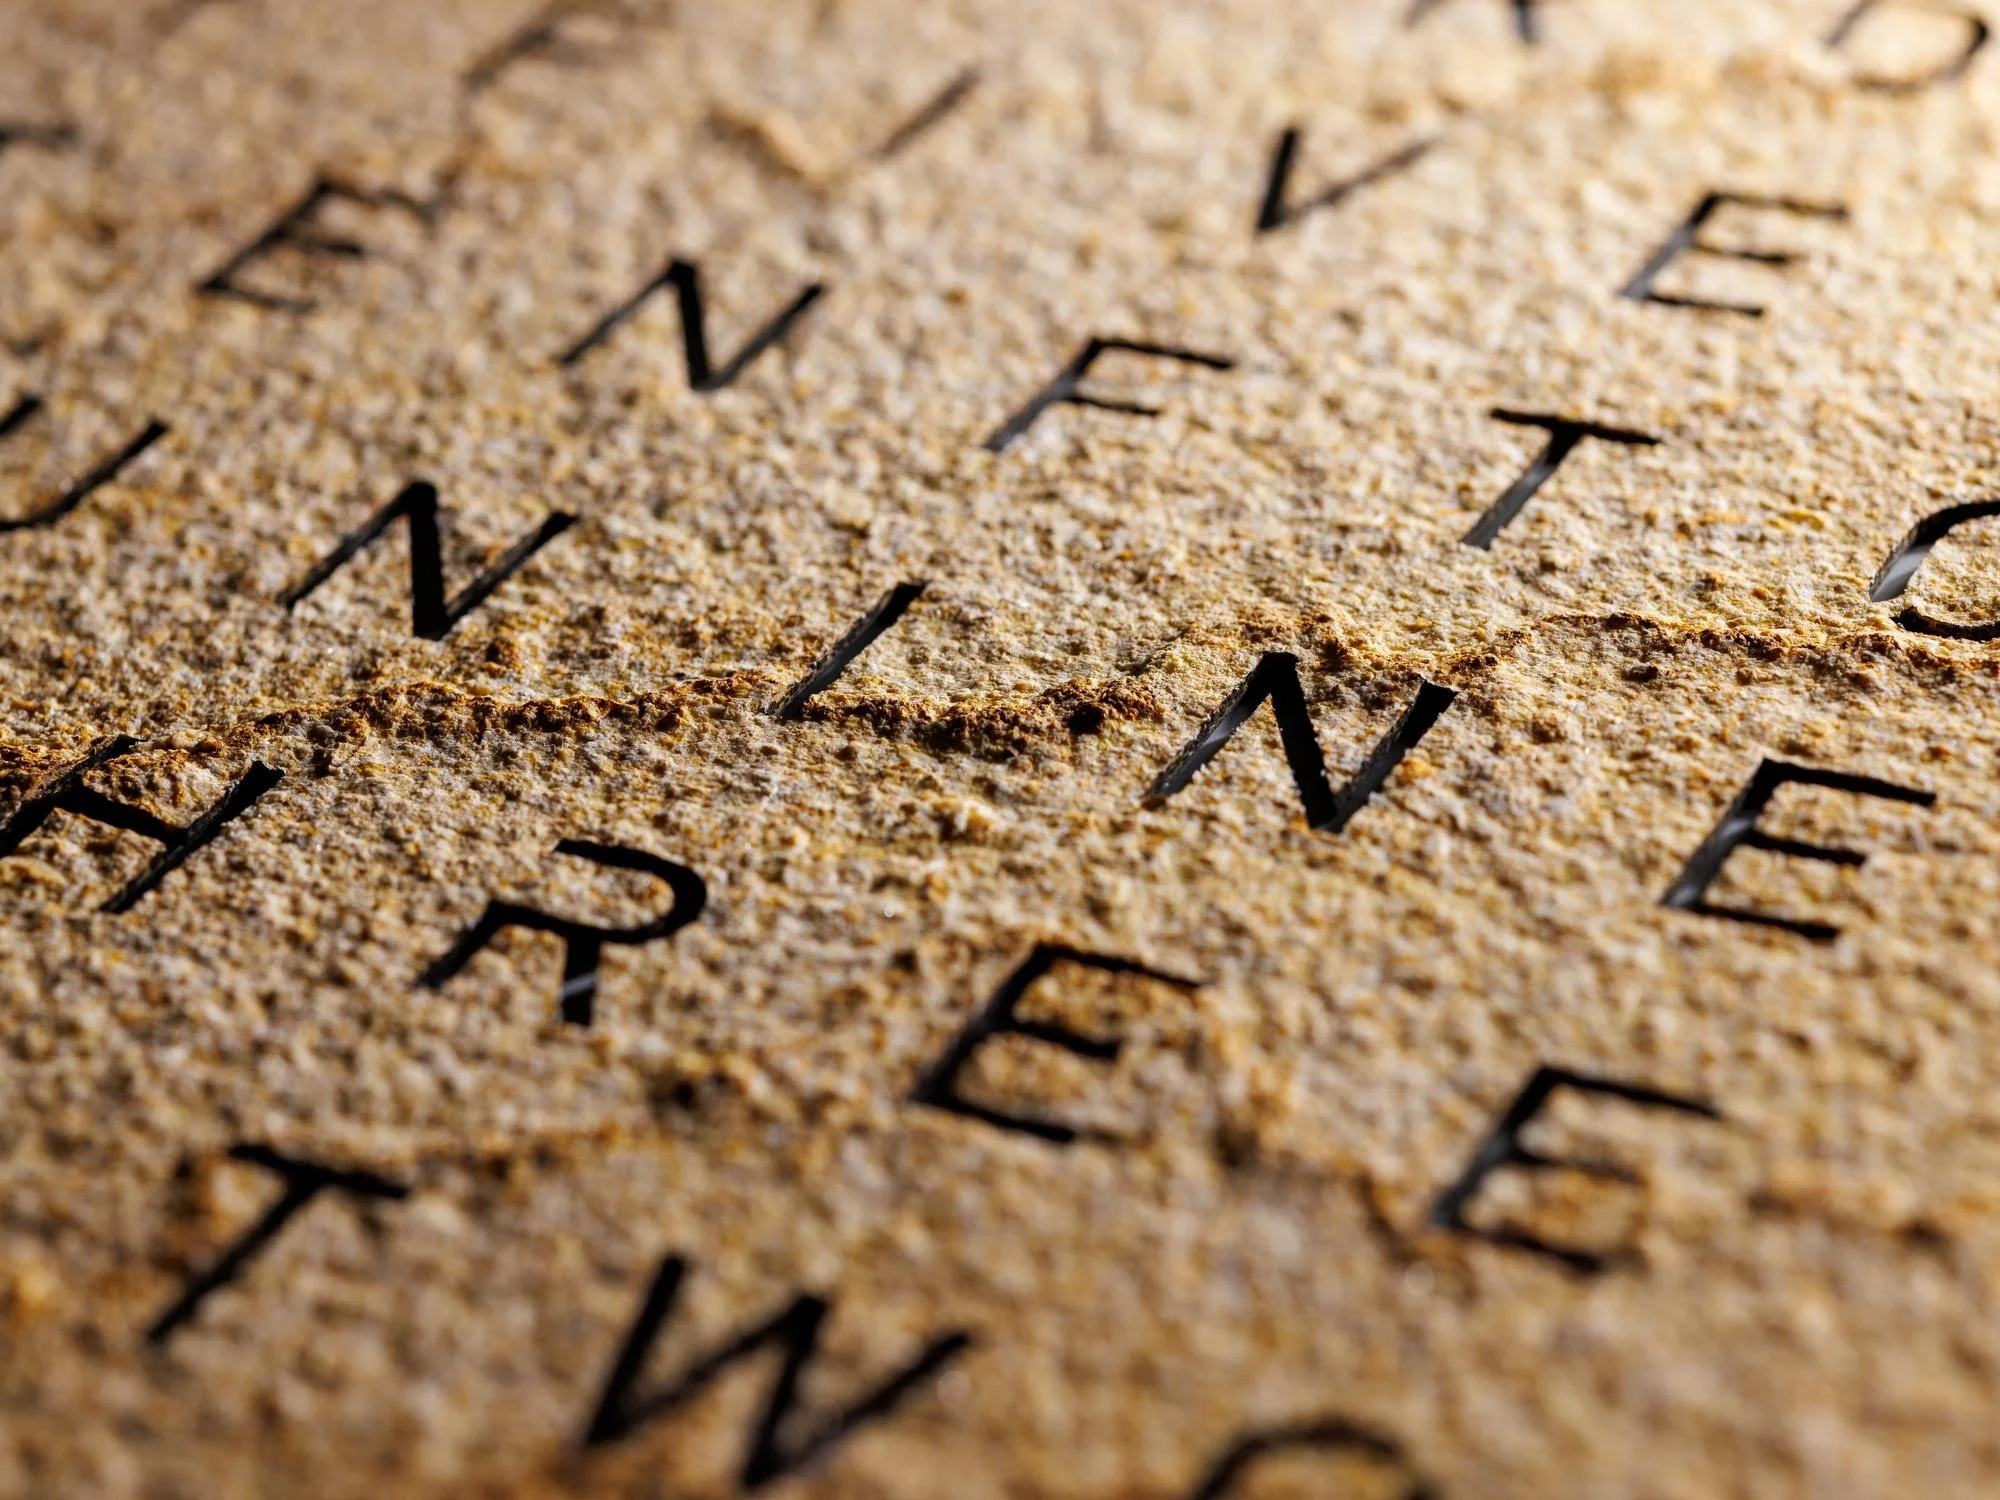 D
FIVE
ENFTO
UNINE
HREE
TWO